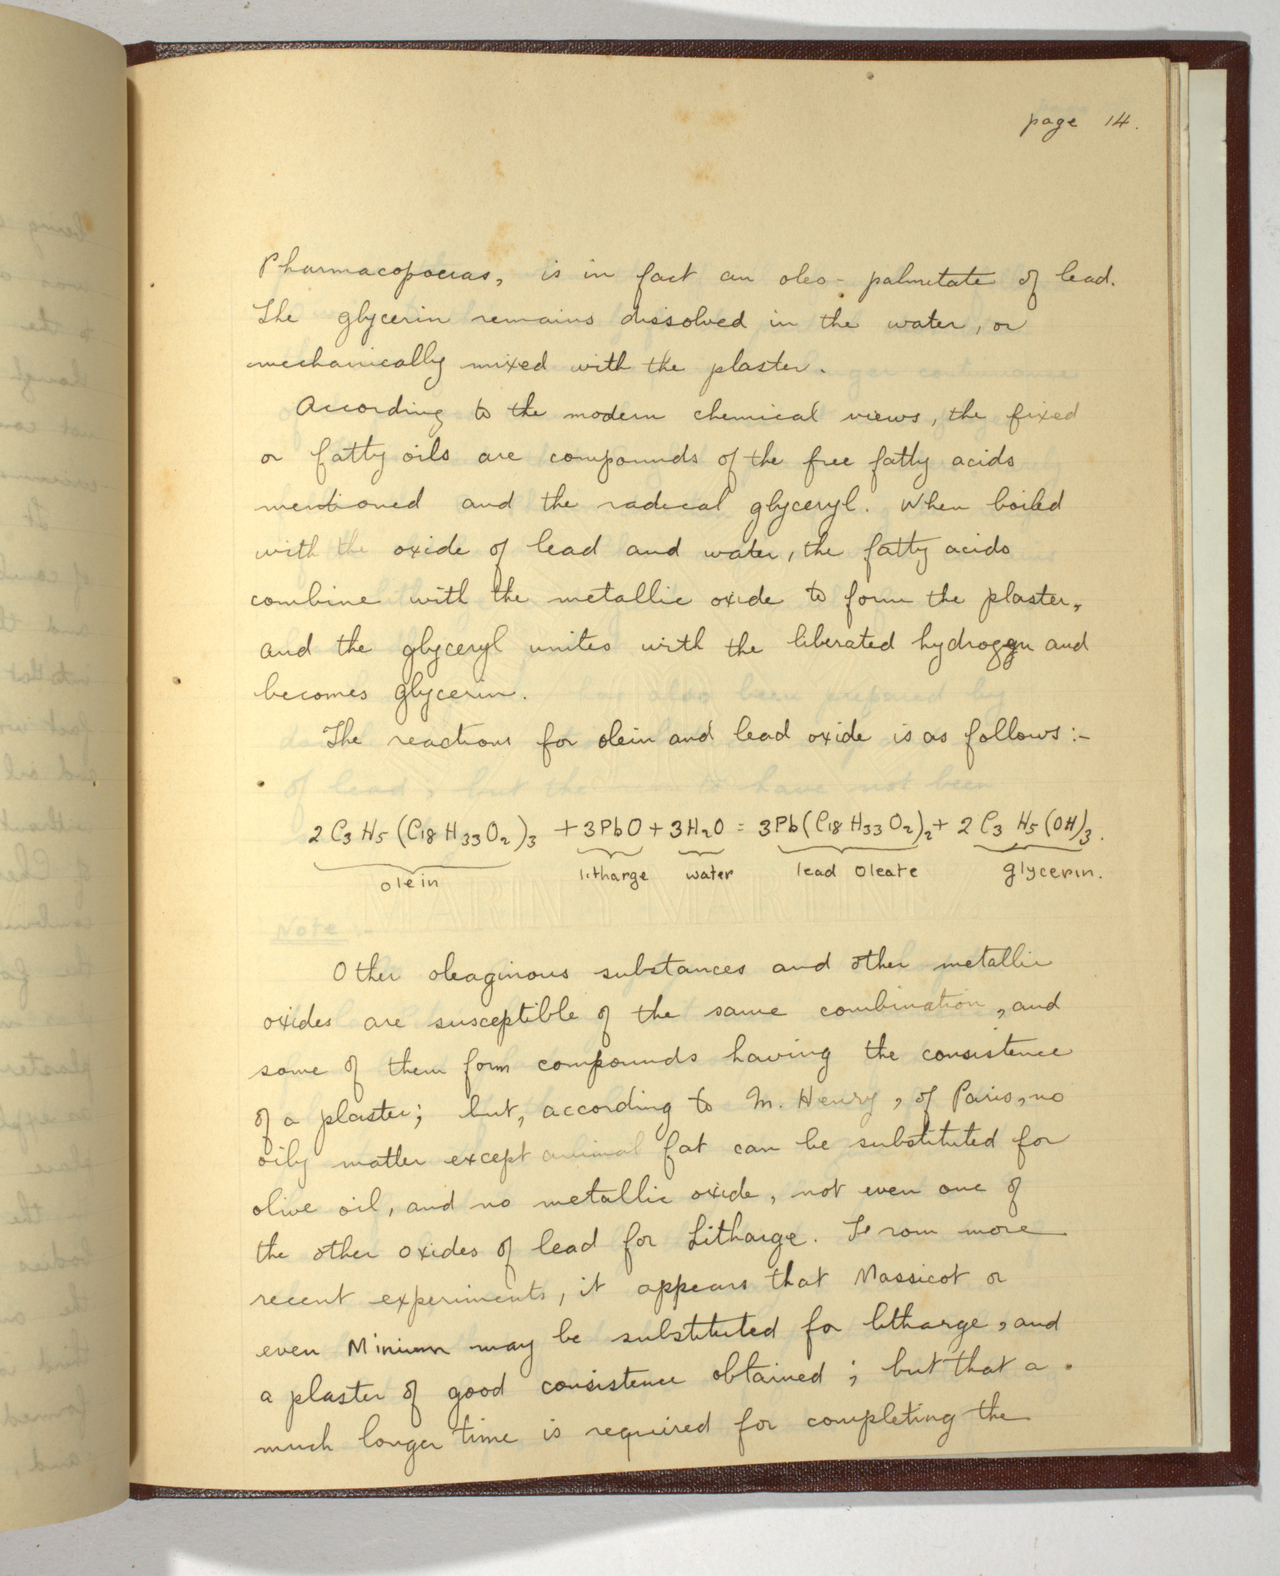 page 14.
Pharmacopoeias, is in fact an oleo-palmitate of lead.
The glycerin remains dissolved in the water, or
mechanically mixed with the plaster.
According to the modern chemical views, the fixed
or fatty oils are compounds of the free fatty acids
mentioned and the radical glyceryl. When boiled
with the oxide of lead and water, the fatty acids
combine with the metallic oxide to form the plaster,
and the glyceryl unites with the liberated hydrogen and
becomes glycerin.
The reactions for olein and lead oxide is as follows:-
2 C₃ H₅ (C₁₈ H₃₃ O₂)₃ + 3PbO + 3H₂O = 3Pb(C₁₈ H₃₃ O₂)₂ + 2 C₃ H₅ (OH)₃.
olein litharge water lead oleate glycerin.
Note:-
Other oleaginous substances and other metallic
oxides are susceptible of the same combination, and
some of them form compounds having the consistence
of a plaster; but, according to M. Henry, of Paris, no
oily matter except animal fat can be substituted for
olive oil, and no metallic oxide, not even one of
the other oxides of lead for Litharge. From more
recent experiments, it appears that Massicot or
even Minium may be substituted for litharge, and
a plaster of good consistence obtained; but that a
much longer time is required for completing the